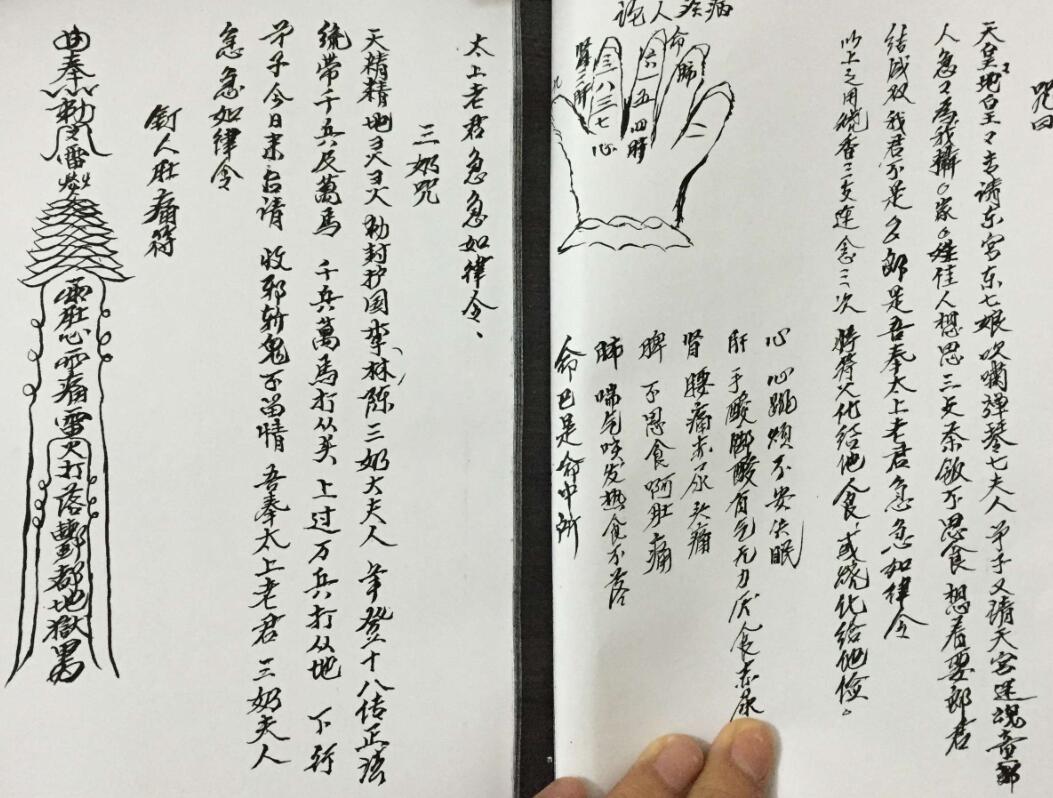 咒曰
天皇地皇々专请东宫东七娘吹啸弹琴七夫人弟子又请天宫迷魂童郎
人急々为我摄○家○姓佳人想思三天茶饭不思食想着要郎君
结成双我君不是名郎是吾奉太上老君急急如律令
以上之用烧香三支连念三次将符火化给他人食或烧化给他俭。
论人疾病
命
肺
六一五
四肝
三八三七
心
肾二肝
心 心跳烦不安失眠
肝 手酸脚酸有气无力灰人食赤尿
肾 腰痛赤尿头痛
脾 不思食啊肚痛
肺 喘气咳发热食不落
命 命已是命中所
太上老君急急如律令、
三奶咒
天精精地灵灵勒封护国李、林、陈三奶大夫人 笔登十八传正法
统带千兵及萬馬 千兵萬馬打从天 上过万兵打从地 下行
弟子今日来启请 收邪斩鬼不留情 吾奉太上老君三奶夫人
急急如律令
釘人肚痛符
奉勒令雷
肚心痛雷火打落酆都地獄